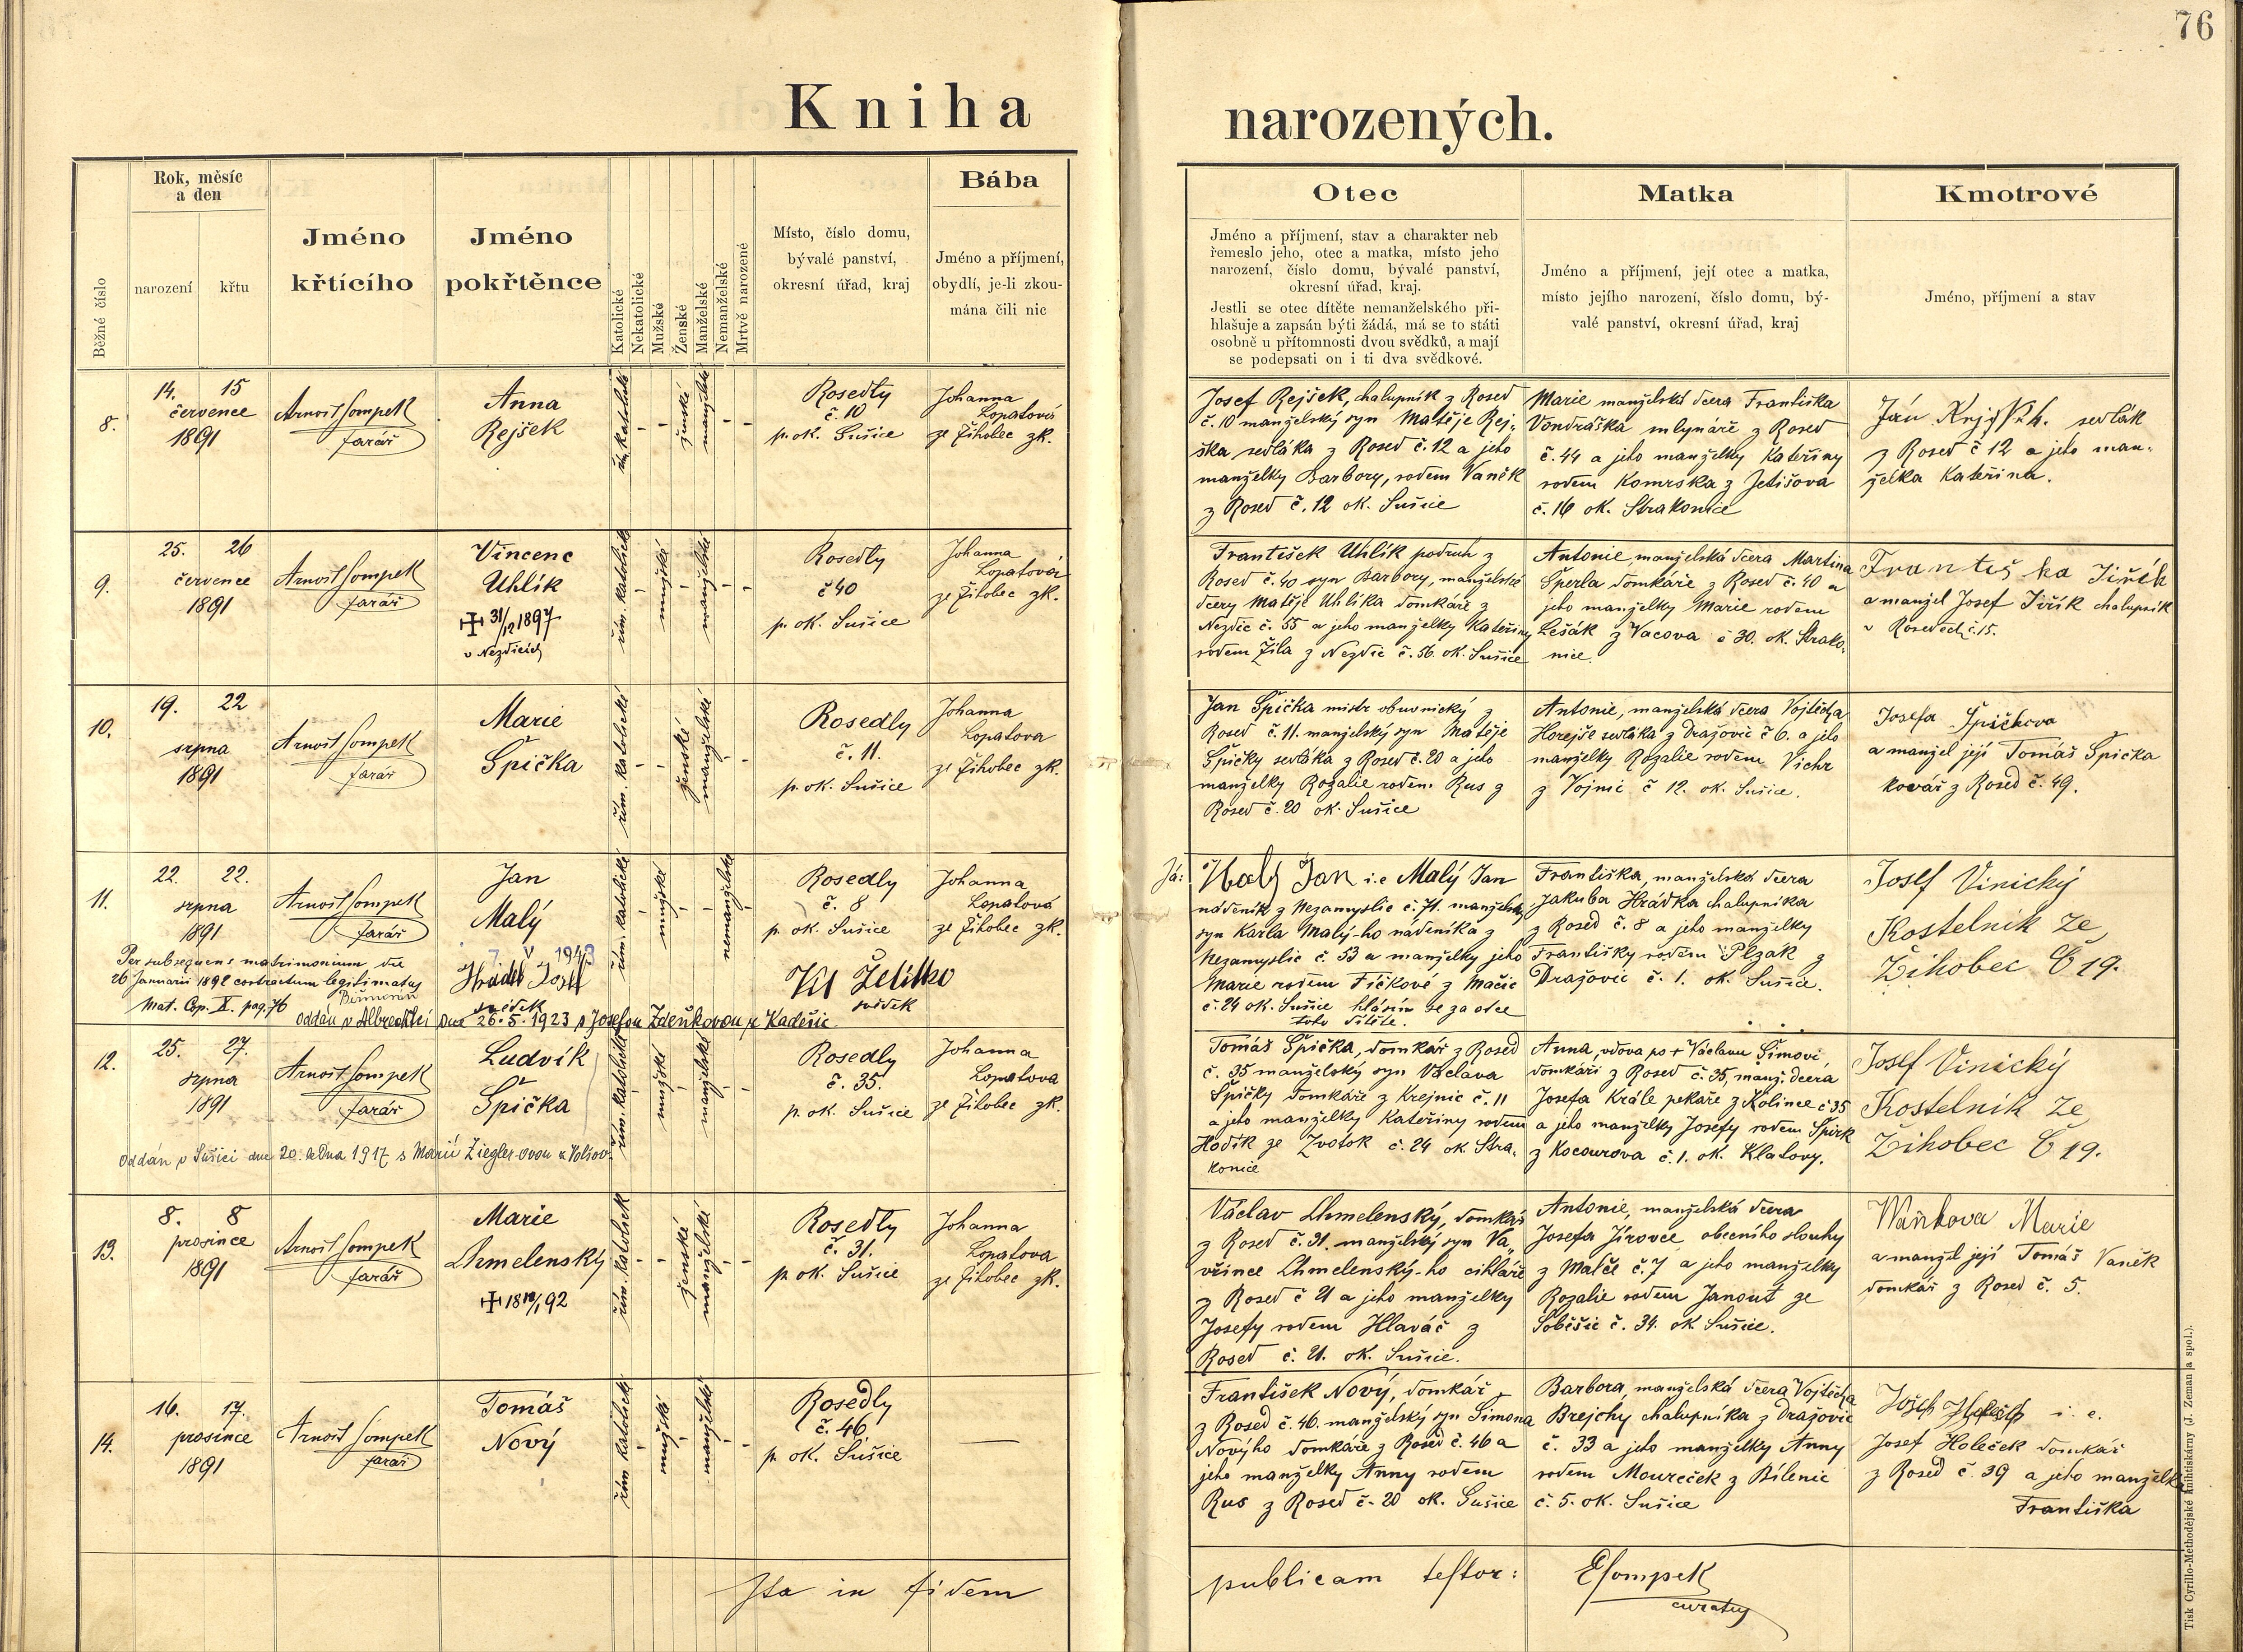 76
Kniha narozených.
Běžné číslo
Rok, měsíc
a den
narození
křtu
Jméno
křtícího
Jméno
pokřtěnce
Katolické
Nekatolické
Mužské
Ženské
Manželské
Nemanželské
Mrtvě narozené
Místo, číslo domu,
bývalé panství,
okresní úřad, kraj
Bába
Jméno a příjmení,
obydlí, je-li zkou-
mána čili nic
Otec
Jméno a příjmení, stav a charakter neb
řemeslo jeho, otec a matka, místo jeho
narození, číslo domu, bývalé panství,
okresní úřad, kraj.
Jestli se otec dítěte nemanželského při-
hlašuje a zapsán býti žádá, má se to státi
osobně u přítomnosti dvou svědků, a mají
se podepsati on i ti dva svědkové.
Matka
Jméno a příjmení, její otec a matka,
místo jejího narození, číslo domu, bý-
valé panství, okresní úřad, kraj
Kmotrové
Jméno, příjmení a stav
8.
14. 15
července
1891
Arnošt Sompek
farář
Anna
Rejšek
řím. katolické
ženské
manželské
Rosedly
č. 10
p. ok. Sušice
Johanna
Lopatová
ze Žihobec zk.
Josef Rejšek, chalupník z Rosed
č. 10 manželský syn Matěje Rej-
ška sedláka z Rosed č. 12 a jeho
manželky Barbory, rodem Vaněk
z Rosed č. 12 ok. Sušice
Marie manželská dcera Františka
Vondráška mlynáře z Rosed
č. 44 a jeho manželky Kateřiny
rodem Komrska z Jetišova
č. 16 ok. Strakonice
Ján sedlák
z Rosed č 12 a jeho man-
želka Kateřina.
9.
25. 26
července
1891
Arnošt Sompek
farář
Vincenc
Uhlík
31/12 1897
v Nezdicích
řím. katolické
mužské
manželské
Rosedly
č 40
p. ok. Sušice
Johanna
Lopatová
ze Žihobec zk.
František Uhlík podruh z
Rosed č. 40 syn Barbory, manželské
dcery Matěje Uhlíka domkáře z
Nezdic č. 55 a jeho manželky Kateřiny
rodem Žila z Nezdic č. 56. ok. Sušice
Antonie, manželská dcera Martina
Šperla domkáře z Rosed č. 40 a
jeho manželky Marie rodem
Lešák z Vacova č 30. ok. Strako-
nice.
Františka Jiřík
a manžel Josef Jiřík chalupník
v Rosedech č. 15.
10.
19. 22
srpna
1891
Arnošt Sompek
farář
Marie
Špička
řím. katolické
ženské
manželské
Rosedly
č. 11.
p. ok. Sušice
Johanna
Lopatova
ze Žihobec zk.
Jan Špička mistr obuvnický z
Rosed č. 11. manželský syn Matěje
Špičky sedláka z Rosed č. 20 a jeho
manželky Rozalie rodem Rus z
Rosed č. 20 ok. Sušice
Antonie, manželská dcera Vojtěcha
Horejše sedláka z Dražovic č 6. a jeho
manželky Rozalie rodem Vichr
z Vojnic č 12. ok. Sušice.
Josefa Špičkova
a manžel její Tomáš Špička
kovář z Rosed č. 49.
11.
22. 22.
srpna
1891
Arnošt Sompek
farář
Jan
Malý
7. V 1943
řím. katolické
mužské
nemanželské
Rosedly
č. 8
p. ok. Sušice
Johanna
Lopatová
ze Žihobec zk.
Per subsequens matrimonium die
26 Januarii 1892 contractum legitimatus
Mat. Cop. II. pag. 76
Josef
svědek
svědek
oddán v Albrechticích dne 26. 5. 1923 s Josefou Zdeňkovou z Kadešic
Já:
Malý Jan i. e Malý Jan
nádeník z Nezamyslic č. 71. manželský
syn Karla Malý-ho nádeníka z
Nezamyslic č. 53 a manželky jeho
Marie rodem Fičkové z Mačic
č. 24 ok. Sušice hlásím se za otce
toho dítěte.
Františka, manželská dcera
Jakuba Hrádka chalupníka
z Rosed č. 8 a jeho manželky
Františky rodem Plzák z
Dražovic č. 1. ok. Sušice.
Josef Vinický
Kostelnik ze
Žihobec Č 19.
12.
25. 27.
srpna
1891
Arnošt Sompek
farář
Ludvík
Špička
řím. katolické
mužské
manželské
Rosedly
č. 35.
p. ok. Sušice
Johanna
Lopatova
ze Žihobec zk.
Oddán v Sušici dne 20. ledna 1917 s Marií Ziegler-ovou z Volšov.
Tomáš Špička, domkář z Rosed
č. 35 manželský syn Václava
Špičky domkáře z Krejnic č. 11
a jeho manželky Kateřiny rodem
Hodík ze Zvotok č. 24 ok. Stra-
konice
Anna, vdova po + Václavu Šimovi,
domkáři z Rosed č. 35, manž. dcera
Josefa Krále pekaře z Kolince č 35
a jeho manželky Josefy rodem Špirk
z Kocourova č. 1. ok. Klatovy.
Josef Vinický
Kostelnik ze
Žihobec Č 19.
13.
8. 8
prosince
1891
Arnošt Sompek
farář
Marie
Chmelenský
18 12/1 92
řím. katolické
ženské
manželské
Rosedly
č. 31.
p. ok. Sušice
Johanna
Lopatova
ze Žihobec zk.
Václav Chmelenský, domkář
z Rosed č. 31. manželský syn Va-
vřince Chmelenský-ho cihláře
z Rosed č 21 a jeho manželky
Josefy rodem Hlaváč z
Rosed č. 21. ok. Sušice.
Antonie, manželská dcera
Josefa Jírovce obecního slouhy
z Malče č. 7 a jeho manželky
Rozalie rodem Janout ze
Soběšic č. 34. ok Sušice.
Waňkova Marie
a manžel její Tomáš Vaněk
domkář z Rosed č. 5.
14.
16. 17.
prosince
1891
Arnošt Sompek
farář
Tomáš
Nový
řím katolické
mužské
manželské
Rosedly
č. 46
p. ok. Sušice
František Nový, domkář
z Rosed č. 46. manželský syn Šimona
Novýho domkáře z Rosed č. 46 a
jeho manželky Anny rodem
Rus z Rosed č. 20 ok. Sušice
Barbora, manželská dcera Vojtěcha
Brejchy chalupníka z Dražovic
č. 33 a jeho manželky Anny
rodem Moureček z Bílenic
č. 5. ok. Sušice
i. e.
Josef Holeček domkář
z Rosed č. 39 a jeho manželka
Františka
Ita in fidem publicam testor: ESompek
curatus
Tisk Cyrillo-Methodějské knihtiskárny (J. Zeman a spol.).